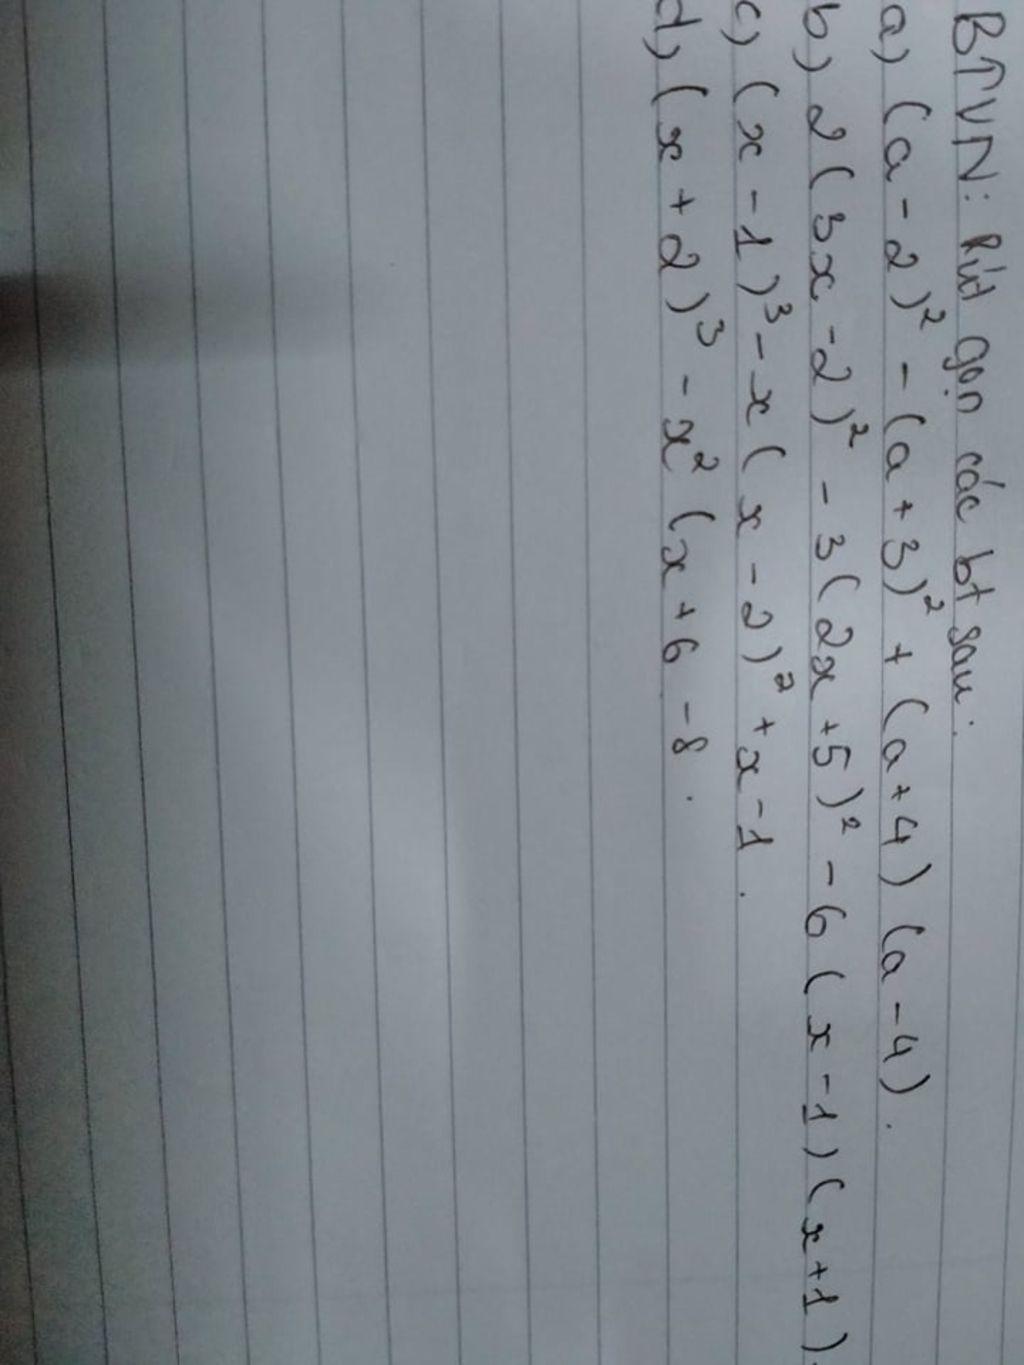 BTVN: Rút gọn các bt sau:
a) (a - 2)² - (a + 3)² + (a + 4) (a - 4).
b) 2 (3x - 2)² - 3 (2x + 5)² - 6 (x - 1) (x + 1).
c) (x - 1)³ - x (x - 2)² + x - 1.
d) (x + 2)³ - x² (x + 6 - 8.